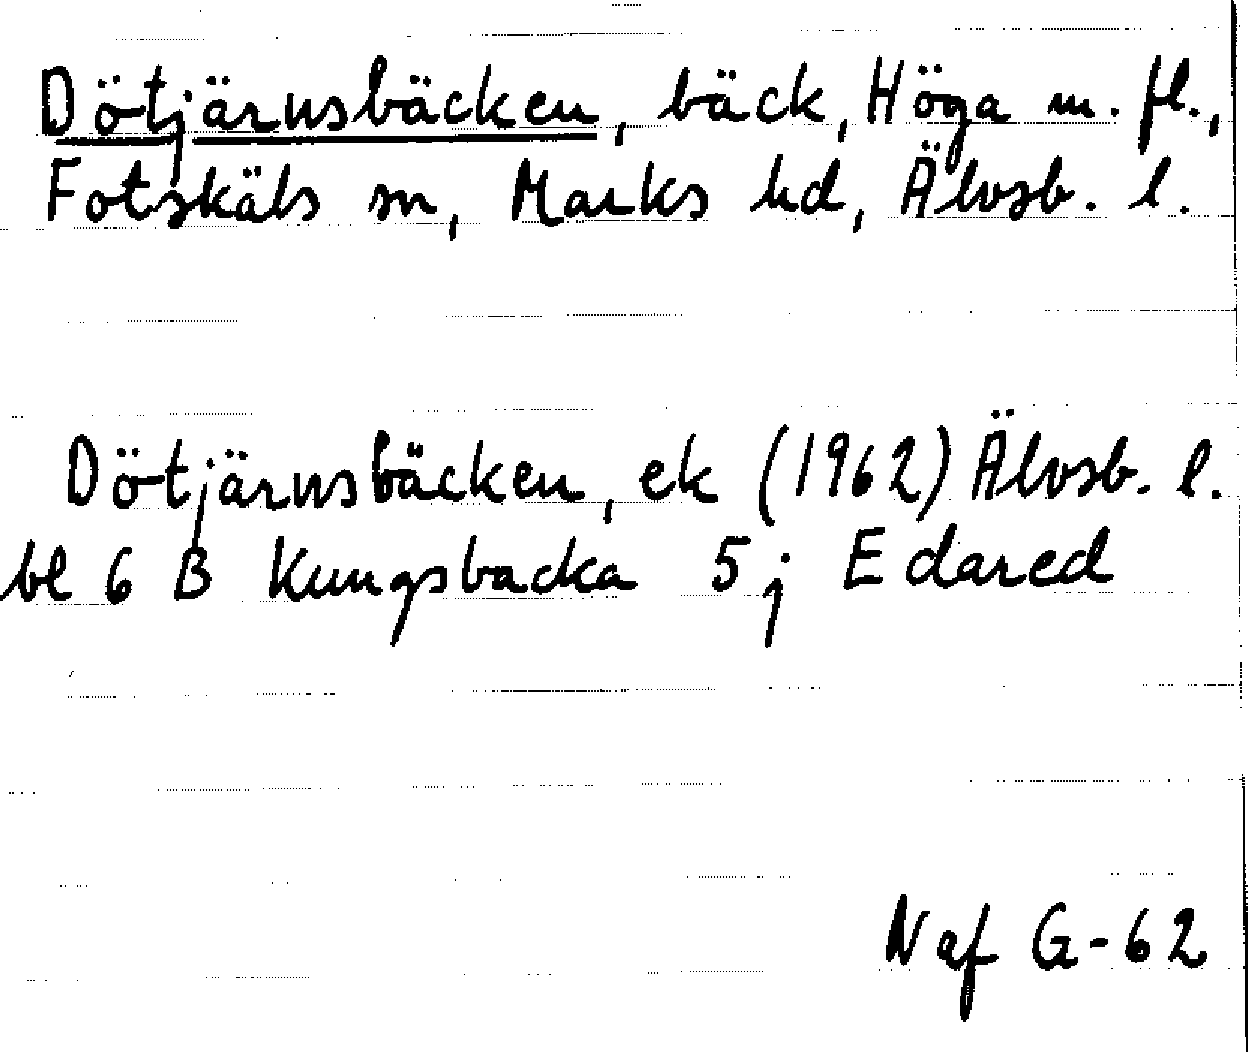 Dötjärnsbäcken, bäck, Höga m. fl.,
Fotskäls sn, Marks hd, Älvsb. l.
Dötjärnsbäcken, ek (1962) Älvsb. l.
bl 6 B Kungsbacka 5j Edared
Naf G-62